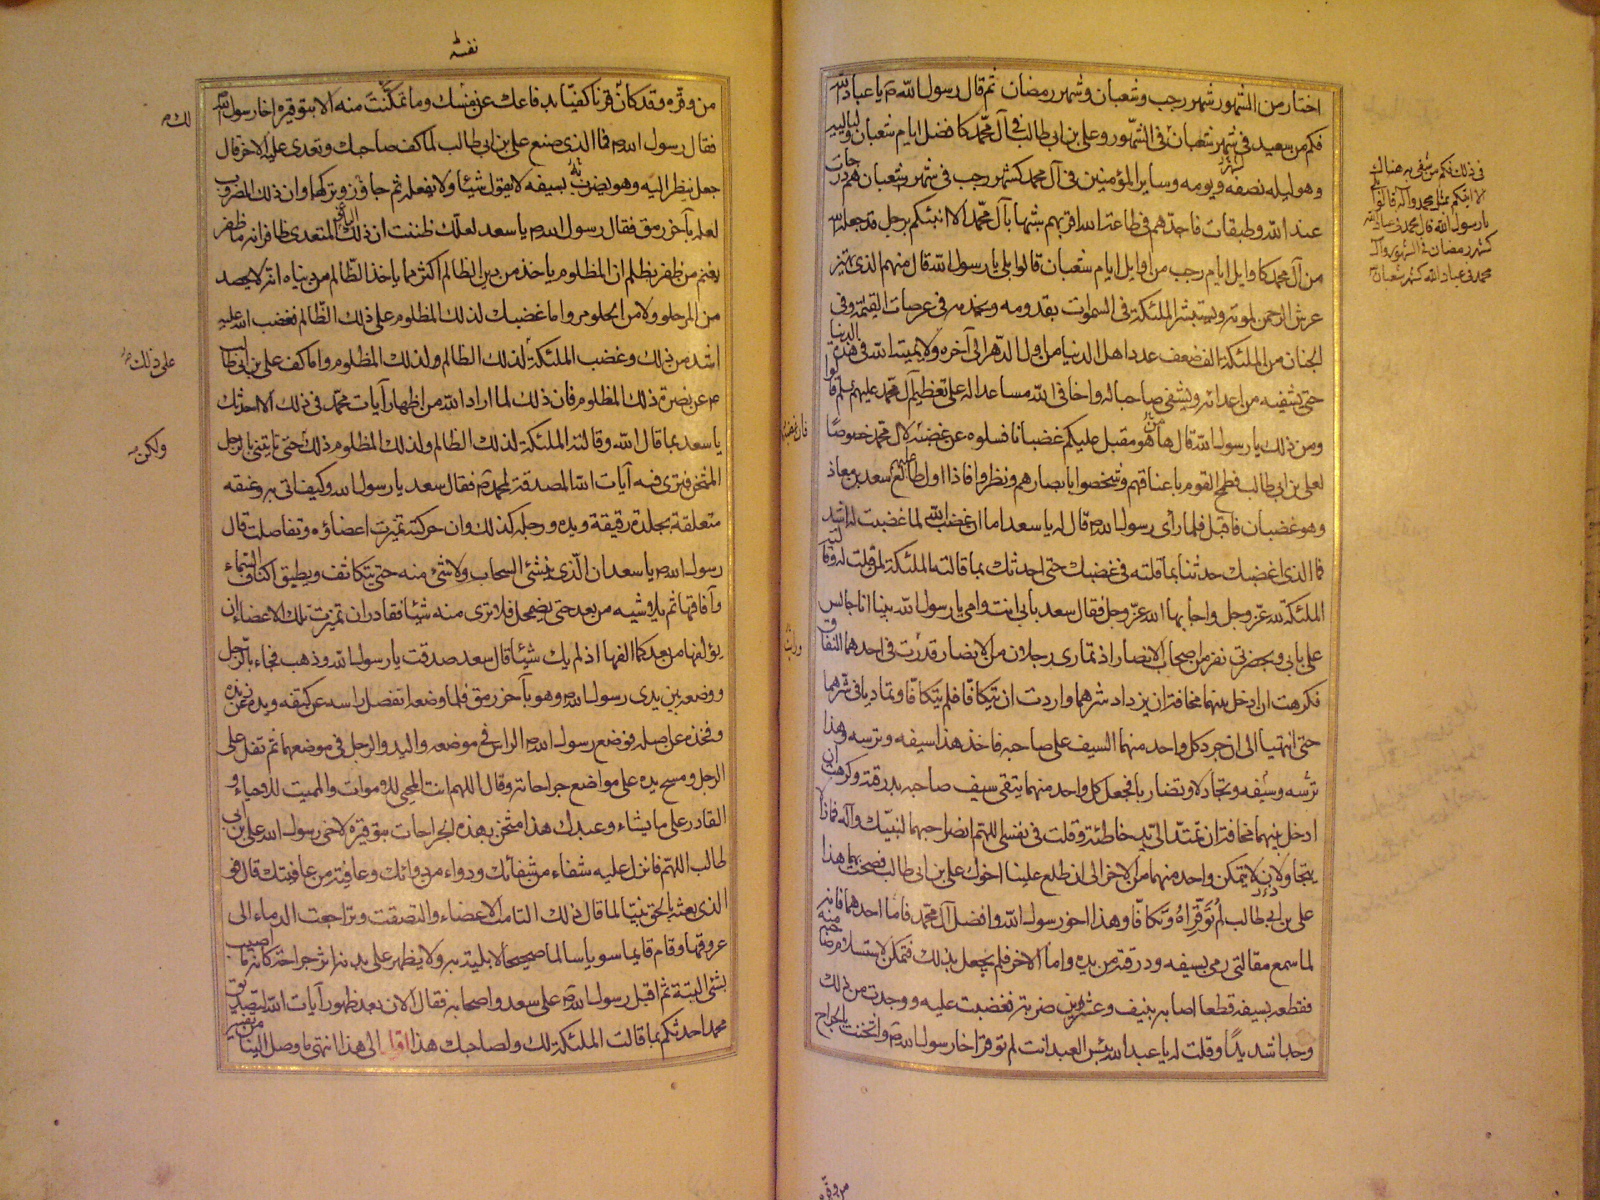 اختار من الشهور شهر رجب وشعبان وشهر رمضان ثم قال رسول الله ص يا عباد الله
فكم من سعيد في شهر شعبان في الشهور وعلي بن ابي طالب في آل محمد كافضل ايام شعبان ولياليه
وهو ليله نصفه ويومه وساير المؤمنين في آل محمد كشهر رجب في شهر شعبان هم درجات
عند الله وطبقات فاجدهم في طاعة الله اقربهم شبها بآل محمد الا انبئكم برجل قد جعله الله
من آل محمد كاوايل ايام رجب من اوايل ايام شعبان قالوا بلى يا رسول الله قال منهم الذي يهتز
عرش الرحمن لموته وتستبشر الملئكة في السموات بقدومه وتخدمه في عرصات القيمة وفي
الجنان من الملئكة الف ضعف عدد اهل الدنيا من اول الدهر الى آخره ولا يميته الله في هذه الدنيا
حتى يشفيه من اعدائه ويشفي صاحبا له واخا في الله مساعدا له على تعظيم آل محمد عليهم سلم قالوا
ومن ذلك يا رسول الله قال ها هو مقبل عليكم غضبانا فسلوه عن غضبه لآل محمد خصوصا
لعلي بن ابي طالب فطمح القوم باعناقهم وشخصوا بابصارهم ونظروا فاذا اول طالع عليهم سعد بن معاذ
وهو غضبان فاقبل فلما رأى رسول الله ص قال له يا سعد اما ان غضب الله لما غضبت له اشد
فما الذي اغضبك حدثنا بما قلته في غضبك حتى احدثك بما قالته الملئكة لمن قلت له وقالته
الملئكة لله عز وجل واجابها الله عز وجل فقال سعد بابي انت وامي يا رسول الله بينا انا جالس
على بابي وبحضرتي نفر من اصحاب الانصار اذ تمارى رجلان من الانصار قد رت في احدهما النفاق
فكرهت ان ادخل بينهما مخافة ان يزداد شرهما واردت ان يتكافا فلم يتكافا وتماديا في شرهما
حتى انتهيا الى ان جرد كل واحد منهما السيف على صاحبه فاخذ هذا سيفه وترسه وهذا
ترسه وسيفه وتجادلا وتضاربا فجعل كل واحد منهما يتقي سيف صاحبه بدرقته وكرهت ان
ادخل بينهما مخافة ان تمتد الي يد خاطئة وقلت في نفسي اللهم انصر احبهما لنبيك وآله فما زالا
يتجاولان لا يتمكن واحد منهما من الآخر الى ان طلع علينا اخوك علي بن ابي طالب فصحت بهما هذا
علي بن ابي طالب لم توقراه وتكافا وهذا اخو رسول الله وافضل آل محمد فاما احدهما فانه
لما سمع مقالتي رمى بسيفه ودرقته من يده واما الآخر فلم يحفل بذلك فتمكن لاستسلام صاحبه منه
فقطعه بسيفه قطعا اصابه بنيف وعشرين ضربة فغضبت عليه ووجدت من ذلك
وجدا شديدا وقلت له يا عبد الله بئس العبد انت لم توقر اخا رسول الله ص واثخنت بالجراح
في ذلك فكم من شقي به هناك
الا انبئكم بمثل محمد وآله قالوا بلى
يا رسول الله قال محمد في عباد الله
كشهر رمضان في الشهور وآل
محمد في عباد الله كشهر شعبان
من وقره
نفسه
من وقره وقد كان قرنا كفيا بدفاعك عن نفسك وما تمكنت منه الا بتوقيره اخا رسول الله
فقال رسول الله ص فما الذي صنع علي بن ابي طالب لما كف صاحبك وتعدى عليه الآخر قال
جعل ينظر اليه وهو يضربه بسيفه لا يقول شيئا ولا يفعله ثم جاز وتركهما وان ذلك المضروب
لعله بآخر رمق فقال رسول الله ص يا سعد لعلك ظننت ان ذلك الباغي المتعدي ظافر انه ما ظفر
يغنم من ظفر بظلم ان المظلوم ياخذ من دين الظالم اكثر مما ياخذ الظالم من دنياه انه لا يحصد
من المر حلو ولا من الحلو مر واما غضبك لذلك المظلوم على ذلك الظالم فغضب الله عليه
اشد من ذلك وغضب الملئكة لذلك الظالم ولذلك المظلوم واما كف علي بن ابي طالب
ع عن نصرة ذلك المظلوم فان ذلك لما اراد الله من اظهار آيات محمد في ذلك لا احدثك
يا سعد بما قال الله وقالته الملئكة لذلك الظالم ولذلك المظلوم ذلك حتى تاتيني بالرجل
المثخن فترى فيه آيات الله المصدقة لمحمد ص فقال سعد يا رسول الله وكيف اتي به وعنقه
متعلقة بجلدة رقيقة ويده ورجله كذلك وان حركته تميزت اعضاؤه وتفاصلت قال
رسول الله ص يا سعد ان الذي ينشئ السحاب ولا شئ منه حتى يتكاثف ويطبق اكناف السماء
وآفاقها ثم يلاشيه من بعد حتى يضمحل فلا ترى منه شيئا فقادر ان تميزت تلك الاعضاء ان
يؤلفها من بعد كما الفها اذ لم يك شيئا قال سعد صدقت يا رسول الله وذهب فجاء بالرجل
ووضعه بين يدي رسول الله ص وهو بآخر رمق فلما وضعه انفصل راسه عن كتفه ويده عن زنده
وفخذه عن اصله فوضع رسول الله ص الراس في موضعه واليد والرجل في موضعهما ثم تفل على
الرجل ومسح يده على مواضع جراحاته وقال اللهم انت المحيي للاموات والمميت للاحياء و
القادر على ما يشاء وعبدك هذا مثخن بهذه الجراحات بتوقيره لاخي رسول الله علي بن ابي
طالب اللهم فانزل عليه شفاء من شفائك ودواء من دوائك وعافية من عافيتك قال فو
الذي بعثه بالحق نبيا لما قال ذلك التامت الاعضاء والتصقت وتراجعت الدماء الى
عروقها وقام قايما سويا سالما صحيحا لا بلية به ولا يظهر على بدنه اثر جراحة كانه ما اصيب
بشئ البتة ثم اقبل رسول الله ص على سعد واصحابه فقال الآن بعد ظهور آيات الله لتصديق
محمد احدثكم بما قالت الملئكة لك ولصاحبك هذا اقول الى هذا انتهى ما وصل الينا من تفسير
لك ص
على ذلك
ولكن ص